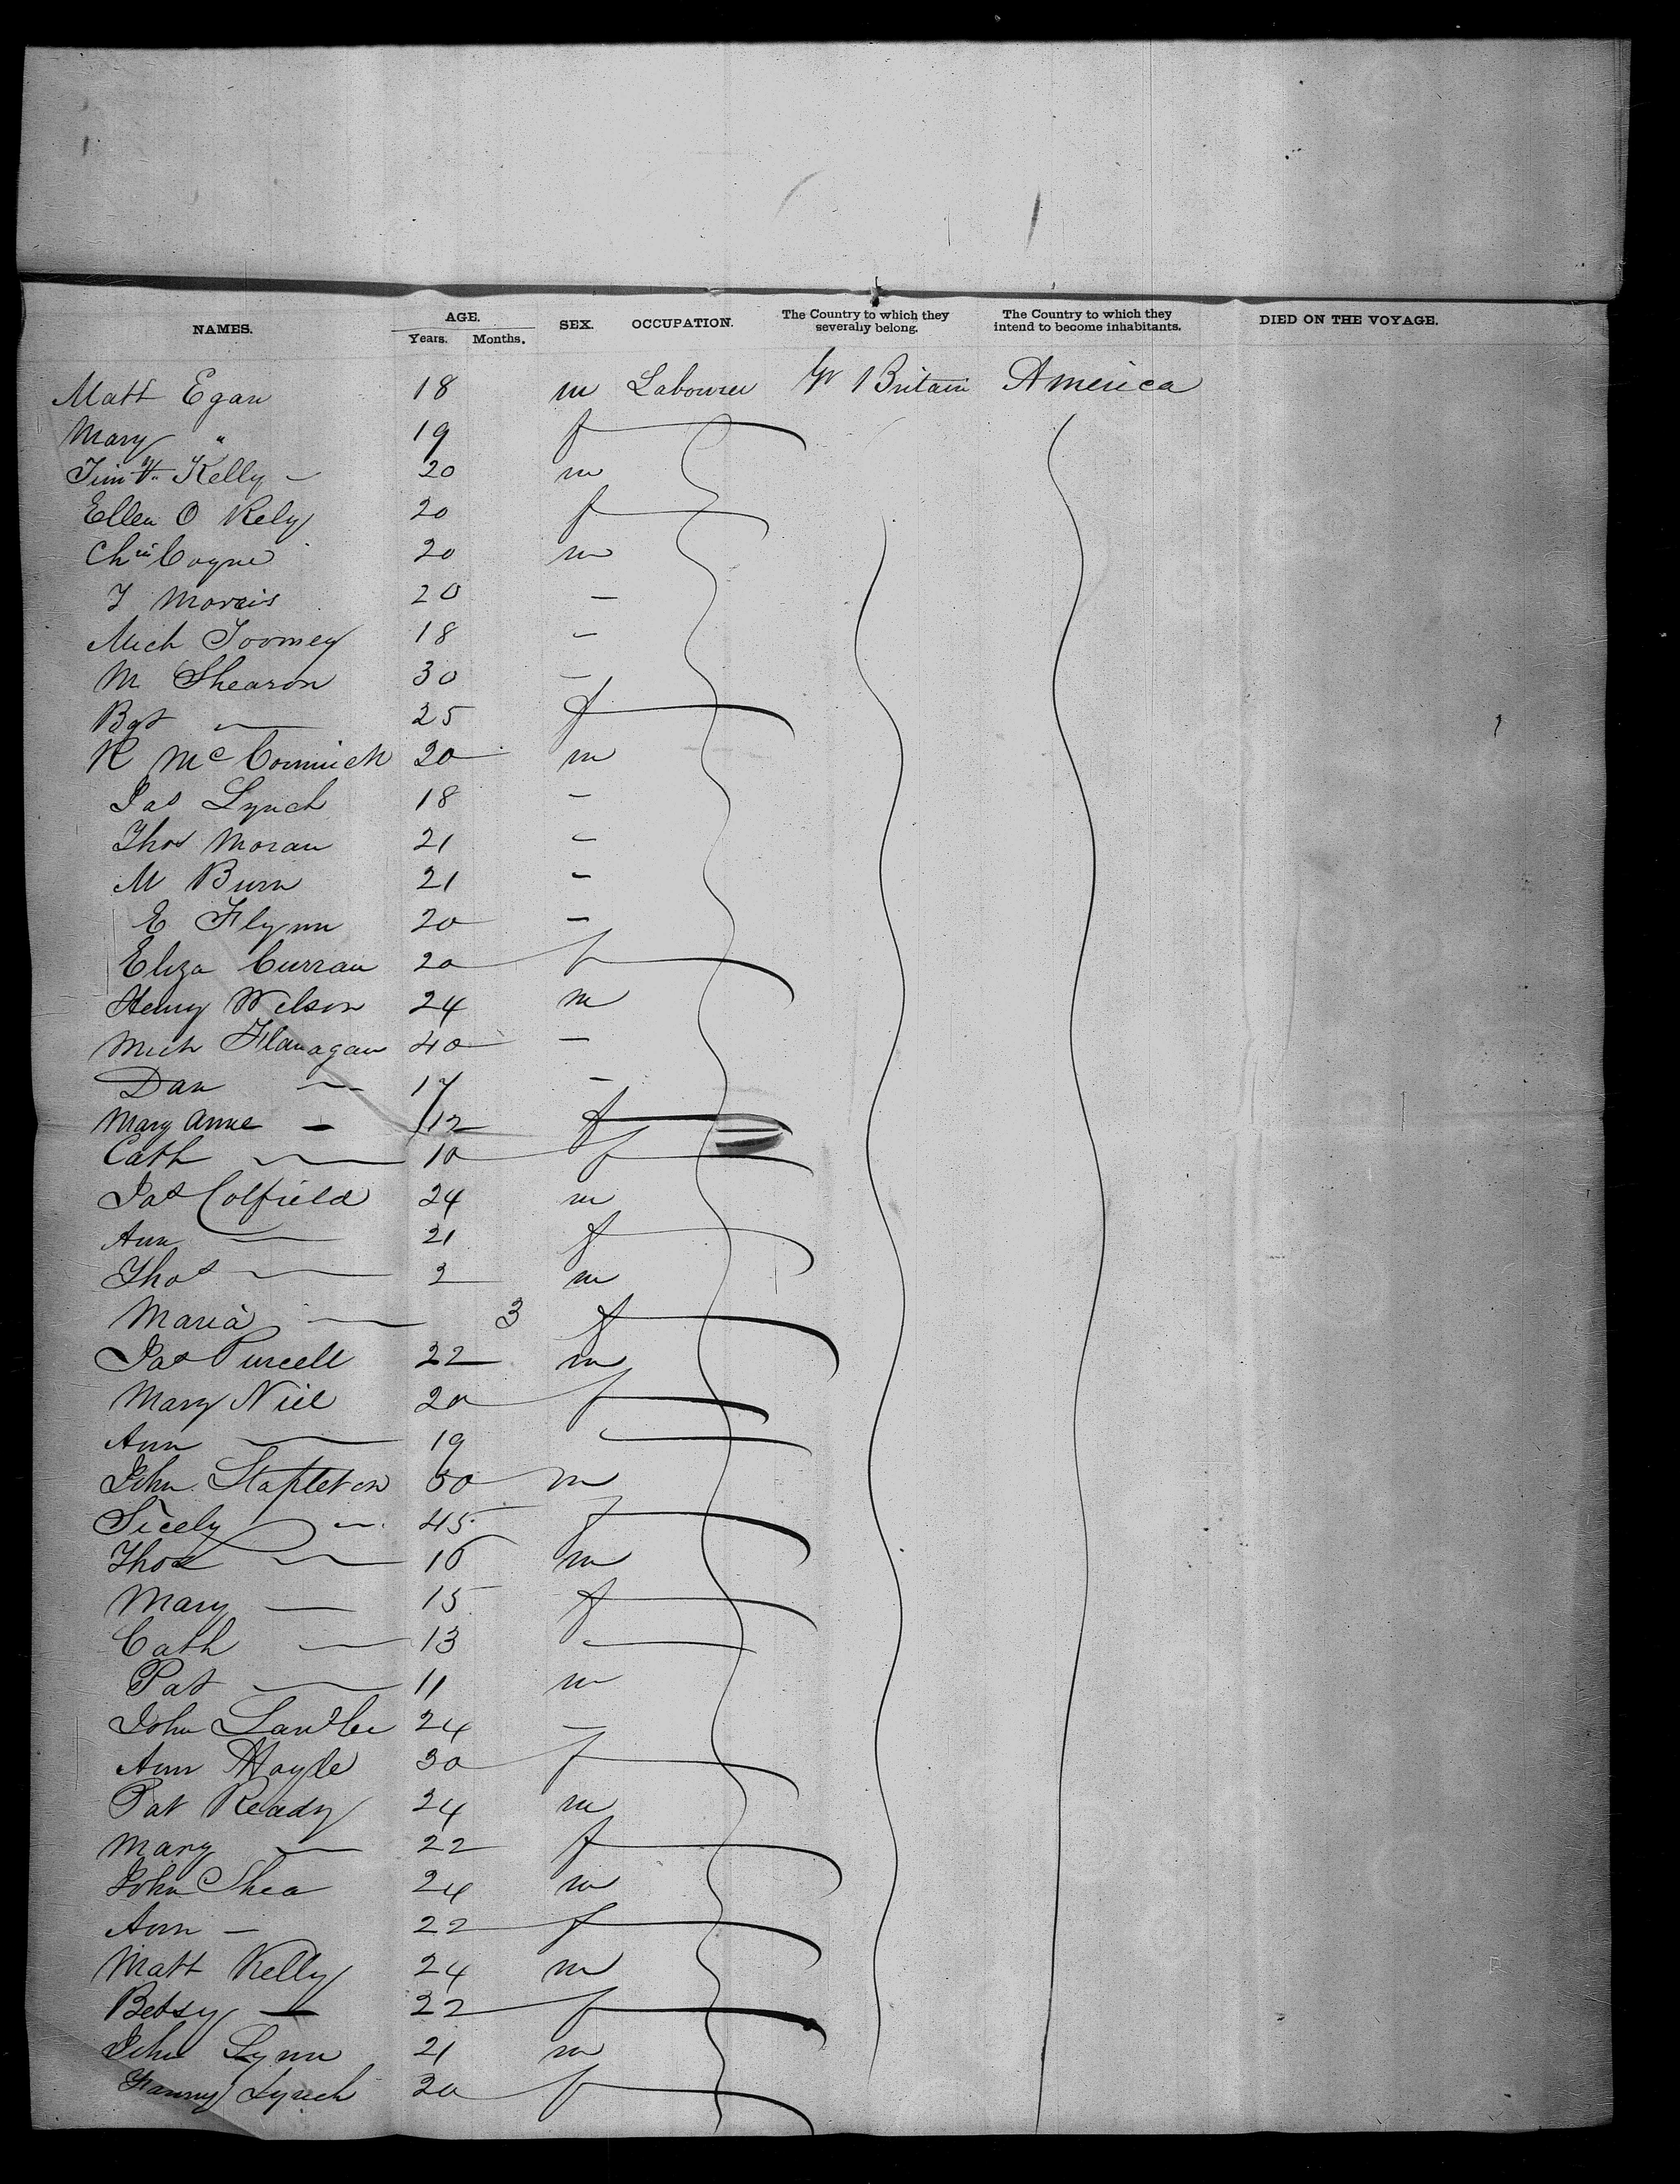 NAMES. AGE. SEX. OCCUPATION. The Country to which they severally belong. The Country to which they intend to become inhabitants. DIED ON THE VOYAGE.
Years. Months.
Matt Egan 18 m Labourer Gr Britain America
Mary " 19 f
Timy. Kelly — 20 m
Ellen O Kely 20 f
Chin Coyne 20 m
T Morris 20 —
Mich Toomey 18 —
M Shearon 30 —
Bgt — 25 f
R McCormick 20 m
Jas Lynch 18 —
Thos Moran 21 —
M Burn 21 —
E Flynn 20 —
Eliza Curran 20 f
Henry Wilson 24 m
Mich Flanagan 40 —
Dan — 17 —
Mary Anne — /12 f
Cath — 10 f
Jas Colfield 24 m
Ann — 21 f
Thos — 2 m
Maria — 3 f
Jas Purcell 22 m
Mary Niel 20 f
Ann — 19 —
John Stapleton 50 m
Sicely — 45 f
Thos — 16 m
Mary — 15 f
Cath — 13 —
Pat — 11 m
John 24 —
Ann Hoyle 30 f
Pat Ready 24 m
Mary — 22 f
John Shea 24 m
Ann — 22 f
Matt Kelly 24 m
Betsy — 22 f
John Lynn 21 m
Fanny Lynch 20 f